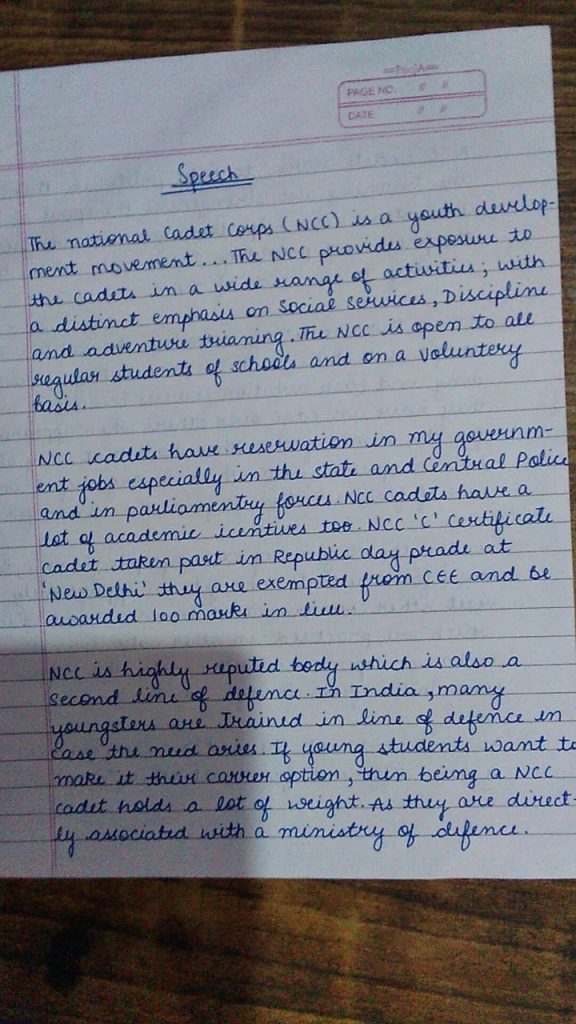 PoojA
PAGE NO. // //
DATE // //
Speech
The national Cadet Corps (NCC) is a youth develop-
ment movement... The NCC provides exposure to
the cadets in a wide range of activities; with
a distinct emphasis on Social Services, Discipline
and adventure trianing. The NCC is open to all
regular students of schools and on a voluntery
basis.
NCC cadets have reservation in my governm-
ent jobs especially in the state and Central Police
and in parliamentry forces. NCC cadets have a
lot of academic icentives too. NCC 'C' Certificate
cadet taken part in Republic day prade at
'New Delhi' they are exempted from CEE and be
awarded 100 marks in lieu.
NCC is highly reputed body which is also a
second line of defence. In India, many
youngsters are Trained in line of defence in
case the need aries. If young students want to
make it their carrer option, then being a NCC
cadet holds a lot of weight. As they are direct-
ly associated with a ministry of defence.